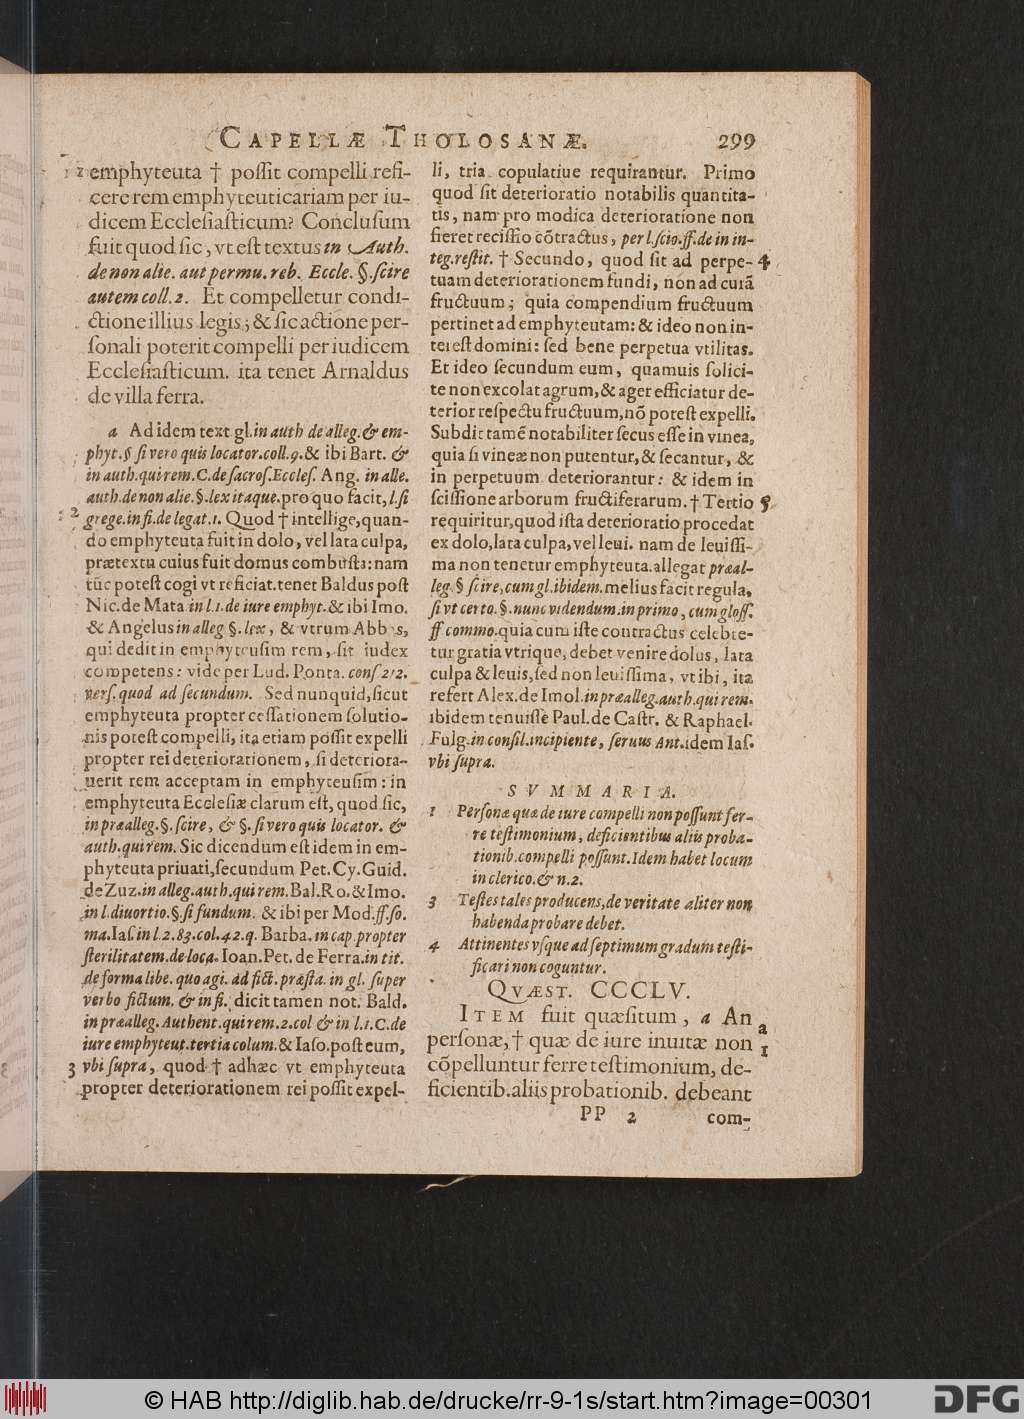 CAPELLÆ THOLOSANÆ. 299
emphyteuta † poſſit compelli refi-
cere rem emphyteuticariam per iu-
dicem Eccleſiaſticum? Concluſum
fuit quod ſic, vt eſt textus in Auth.
de non alie. aut permu. reb. Eccle. §. ſcire
autem coll. 2. Et compelletur condi-
ctione illius legis; & ſic actione per-
ſonali poterit compelli per iudicem
Eccleſiaſticum. ita tenet Arnaldus
de villa ferra.
a Ad idem text gl. in auth de alleg. & em-
phyt. § ſi vero quis locator. coll. 9. & ibi Bart. &
in auth. qui rem. C. de ſacroſ. Eccleſ. Ang. in alle.
auth. de non alie. §. lex itaque. pro quo facit, l. ſi
2 grege. in fi. de legat. 1. Quod † intellige, quan-
do emphyteuta fuit in dolo, vel lata culpa,
prætextu cuius fuit domus combuſta: nam
tūc poteſt cogi vt reficiat. tenet Baldus poſt
Nic. de Mata in l. 1. de iure emphyt. & ibi Imo.
& Angelus in alleg §. lex, & vtrum Abbas,
qui dedit in emphyteuſim rem, ſit iudex
competens: vide per Lud. Ponta. conſ 212.
verſ. quod ad ſecundum. Sed nunquid, ſicut
emphyteuta propter ceſſationem ſolutio-
nis poteſt compelli, ita etiam poſſit expelli
propter rei deteriorationem, ſi deteriora-
uerit rem acceptam in emphyteuſim: in
emphyteuta Eccleſiæ clarum eſt, quod ſic,
in præalleg. §. ſcire, & §. ſi vero quis locator. &
auth. qui rem. Sic dicendum eſt idem in em-
phyteuta priuati, ſecundum Pet. Cy. Guid.
de Zuz. in alleg. auth. qui rem. Bal. Ro. & Imo.
in l. diuortio. §. ſi fundum. & ibi per Mod. ff. ſo.
ma. Iaſ. in l. 2. 83. col. 42. q. Barba. in cap. propter
ſterilitatem. de loca. Ioan. Pet. de Ferra. in tit.
de forma libe. quo agi. ad fict. præſta. in gl. ſuper
verbo fictum. & in fi. dicit tamen not. Bald.
in præalleg. Authent. qui rem. 2. col & in l. 1. C. de
iure emphyteut. tertia colum. & Iaſo. poſt eum,
3 vbi ſupra, quod † adhæc vt emphyteuta
propter deteriorationem rei poſſit expel-
li, tria copulatiue requirantur. Primo
quod ſit deterioratio notabilis quantita-
tis, nam pro modica deterioratione non
fieret reciſſio cōtractus, per l. ſcio. ff. de in in-
teg. reſtit. † Secundo, quod ſit ad perpe- 4
tuam deteriorationem fundi, non ad curā
fructuum; quia compendium fructuum
pertinet ad emphyteutam: & ideo non in-
tereſt domini: ſed bene perpetua vtilitas.
Et ideo ſecundum eum, quamuis ſolici-
te non excolat agrum, & ager efficiatur de-
terior reſpectu fructuum, nō poteſt expelli.
Subdit tamē notabiliter ſecus eſſe in vinea,
quia ſi vineæ non putentur, & ſecantur, &
in perpetuum deteriorantur: & idem in
ſciſſione arborum fructiferarum. † Tertio 5
requiritur, quod iſta deterioratio procedat
ex dolo, lata culpa, vel leui. nam de leuiſſi-
ma non tenetur emphyteuta. allegat præal-
leg. § ſcire, cum gl. ibidem. melius facit regula,
ſi vt certo. §. nunc videndum. in primo, cum gloſſ.
ff commo. quia cum iſte contractus celebre-
tur gratia vtrique, debet venire dolus, lata
culpa & leuis, ſed non leuiſſima, vt ibi, ita
refert Alex. de Imol. in præalleg. auth. qui rem.
ibidem tenuiſſe Paul. de Caſtr. & Raphael.
Fulg. in conſil. incipiente, ſeruus Ant. idem Iaſ.
vbi ſupra.
SVMMARIA.
1 Perſonæ quæ de iure compelli non poſſunt fer-
re teſtimonium, deficientibus aliis proba-
tionib. compelli poſſunt. Idem habet locum
in clerico. & n. 2.
3 Teſtes tales producens, de veritate aliter non
habenda probare debet.
4 Attinentes vſque ad ſeptimum gradum teſti-
ficari non coguntur.
QVÆST. CCCLV.
ITEM fuit quæſitum, a An a
perſonæ, † quæ de iure inuitæ non 1
cōpelluntur ferre teſtimonium, de-
ficientib. aliis probationib. debeant
PP 2 com-
© HAB http://diglib.hab.de/drucke/rr-9-1s/start.htm?image=00301
DFG